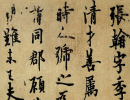 張翰字季
清才善屬
時人號之為
謂同郡顧
難未已夫